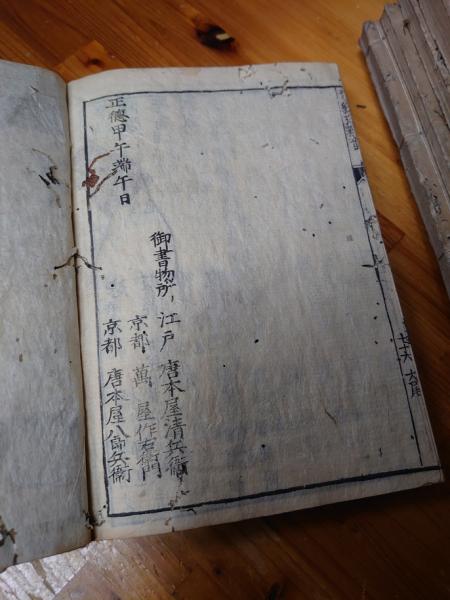 正德甲午端午日
御書物所, 江戸 唐本屋清兵衞
京都 萬屋作右衞門
京都 唐本屋八郎兵衞
大尾